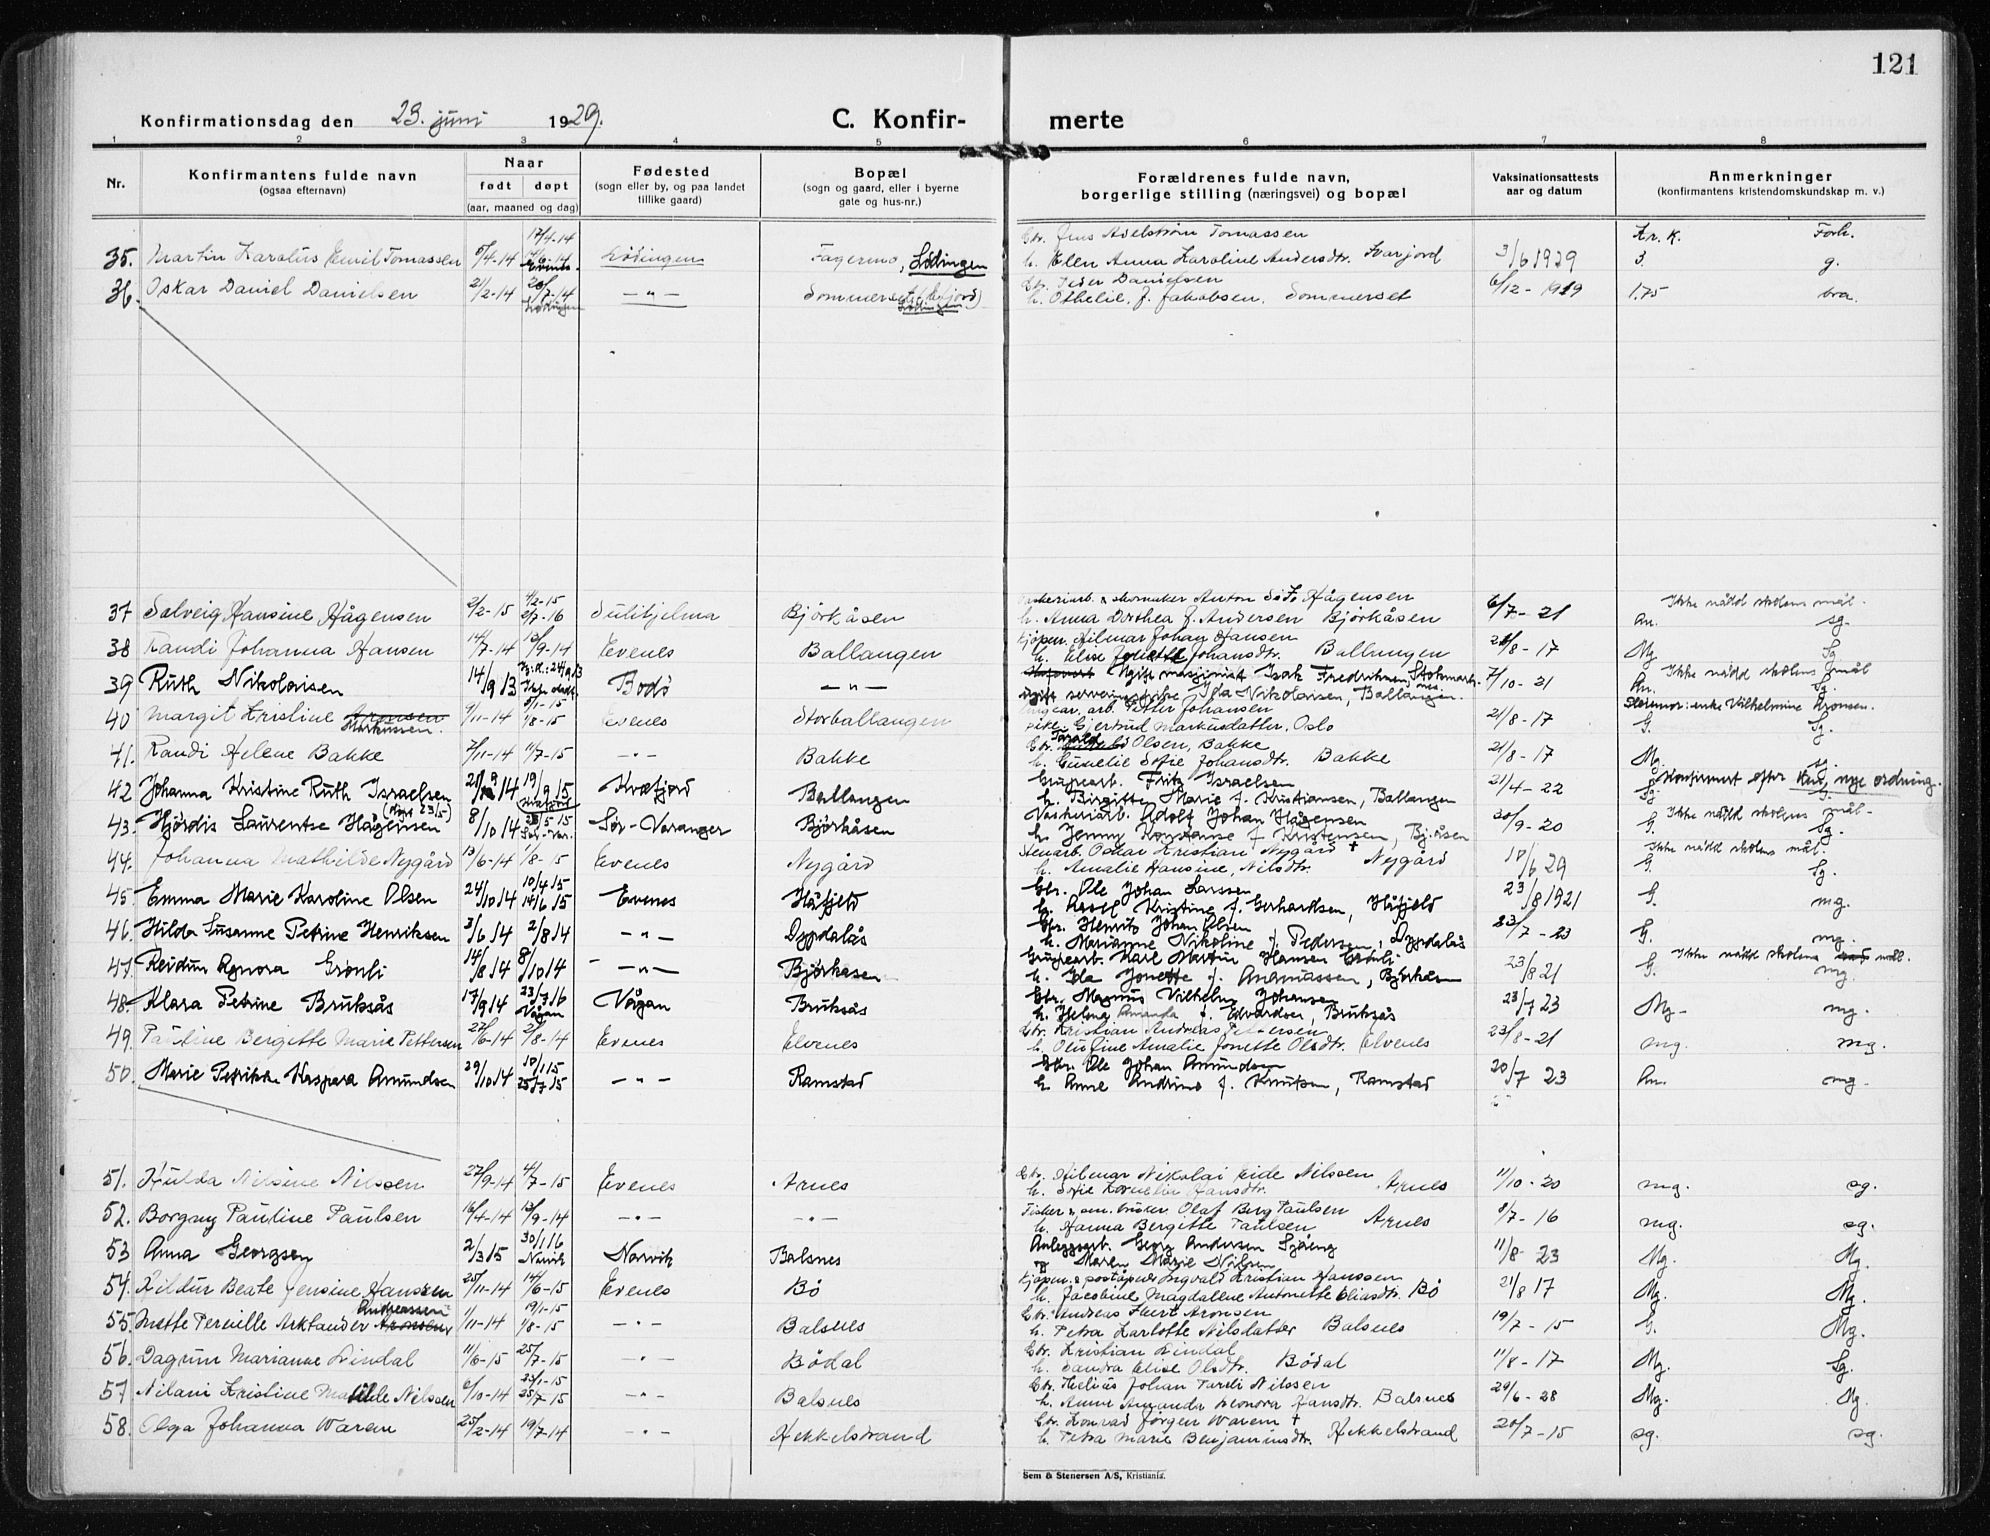 121
Konfirmationsdag den 23. juni 1929.
C. Konfirmerte
1 2 3 4 5 6 7 8
Nr.
Konfirmantens fulde navn
(ogsaa efternavn)
Naar
født døpt
(aar, maaned og dag)
Fødested
(sogn eller by, og paa landet
tillike gaard)
Bopæl
(sogn og gaard, eller i byerne
gate og hus-nr.)
Forældrenes fulde navn,
borgerlige stilling (næringsvei) og bopæl
Vaksinationsattests
aar og datum
Anmerkninger
(konfirmantens kristendomskundskap m. v.)
Kr. K. Forh.
35. Martin Karolus Emil Tomassen 5/4-14 17/4-14 Lødingen Fagermo, Lødingen Jens Adelstrøm Tomassen
h. Elen Anna Karoline Andersdtr. 3/6 1929 3. g.
36. Oskar Daniel Danielsen 21/2-14 26/7-14 Lødingen —"— Sommerset Lødingen Peder Danielsen
h. Othelie f. Jakobsen, Sommerset 6/12-1919 1.75 bra.
37 Solveig Hansine Hågensen 2/2-15 4/2-15 2/7-16 Sulitjelma Bjørkåsen skomaker Anton Hågensen
h. Anna Dorthea f. Andersen Bjørkåsen 6/7-21 Ikke nådd skolens mål. sg.
38 Randi Johanna Hansen 14/7-14 13/9-14 Evenes Ballangen Kjøpm. Hilmar Johan Hansen
h. Elise Johansdtr. Ballangen 28/8-17 Mg. Sg.
39 Ruth Nikolaisen 14/9 13 Bodø —"— Ugift maskinist Isak Fredriksen, Stokmark.
ugift serveringspike Ida Nikolaisen, Ballangen. 7/10-21 Ikke nådd skolens mål Sg.
40 Margit Kristine Aronsen Markussen. 9/11-14 1/8-15 Evenes Storballangen arb. Petter Johansen
pike Gjertrud Markusdatter, Oslo 21/8-17 Steremor: enke Vilhelmine Aronsen. G. Sg.
41. Randi Helene Bakke 7/11-14 11/7-15 —"— Bakke Gbr. Olsen, Bakke
h. Gunelie Sofie Johansdtr. Bakke 21/8-17 Mg. sg.
42 Johanna Kristine Ruth Israelsen 19/9 15 Kvæfjord Ballangen Grubearb. Fritz Israelsen
h. Birgitte Marie f. Kristiansen, Ballangen 21/4-22 Konfirmert efter nye ordning.
43. Hjørdis Laurentse Hågensen (døpt 23/5) 8/10 14 Sør-Var. Sør-Varanger Bjørkåsen Vaskeriarb. Adolf Johan Hågensen
h. Jenny Konstanse f. Kristensen, Bj.åsen 20/9-20 Ikke nådd skolens mål. G. Sg.
44. Johanna Mathilde Nygård 13/6-14 1/8-15 Evenes Nygård Stenarb. Oskar Kristian Nygård †
h. Amalie Hansine Nilsdtr. Nygård 10/6 29 Ikke nådd skolens mål. G. Sg.
45. Emma Marie Karoline Olsen 24/10 14 10/4 15 14/6 15 Evenes Håfjeld Gbr. Ole Johan Larssen
h. Kristine f. Gerhardsen, Håfjeld 23/8 1921 G. mg.
46. Hilda Susanne Petrine Henriksen 3/6 14 2/8 14 —"— Dypdalås Gbr. Henrik Johan Olsen
h. Marianne Nikoline f. Pedersen, Dypdalås 23/7-23 G. mg.
47. Reidun Agnora Grønli 14/8 14 8/10 14 —"— Bjørkåsen Grubearb. Karl Martin Hansen Grønli
h. Ida Jonette f. Andreassen, Bjørkåsen 23/8 21 Ikke nådd skolens mål. G. mg.
48. Klara Petrine Bruksås 17/9 14 23/7 16 Vågan Vågan Bruksås Gbr. Magnus Vilhelm Johansen
h. Helena Amanda f. Edvardsen, Bruksås 23/7 23 Mg- mg.
49. Pauline Bergitte Marie Pettersen 27/6-14 2/8-14 Evenes Elvenes Gbr. Kristian Andreas Pettersen
h. Olufine Amalie Jonette Olsdtr. Elvenes 23/8-21 mg. mg.
50. Marie Petrikke Kaspara Amundsen 29/10 14 10/1 15 25/7 15 —"— Ramstad Gbr. Ole Johan Amundsen
h. Anne Andrine f. Knutsen, Ramstad 20/7 23 An. mg.
51. Hulda Nilsine Nilssen 27/9-14 4/7-15 Evenes Arnes Gbr. Hilmar Nikolai Eide Nilssen
h. Sofie Kornelia Hansdtr. Arnes 11/10-20 mg. sg.
52. Borgny Pauline Paulsen 16/4-14 13/9-14 —"— —"— Fisker Olaf Berg Paulsen
h. Hanna Bergitte Paulsen Arnes 8/7-16 mg. sg.
53 Anna Georgsen 2/3 15 30/1 16 Narvik Narvik Balsnes Anleggsarb. Georg Andersen Sjåeng
og Maren Marie Nilsen 11/8 23 Mg. Mg.
54. Hildur Beate Jensine Hanssen 25/11-14 14/6-15 Evenes Bø Kjøpm. & poståpner Ingvald Kristian Hanssen
h. Jacobine Magdalene Antonette Eliasdtr. Bø 21/8 17 Mg. Mg.
55. Mette Pernille Arktander Aronsen Andreassen 1/11-14 19/1-15 1/8-15 —"— Balsnes Gbr. Andreas Hart Aronsen
h. Petra Karlotte Nilsdatter Balsnes 19/7-15 G. Mg.
56. Dagrun Marianne Lindal 11/6-15 25/7-15 —"— Bødal Gbr. Kristian Lindal
h. Sandra Elise Olsdtr. Bødal 11/8-17 Mg. Sg.
57. Nilani Kristine Matilde Nilssen 6/10-14 23/1-15 25/7-15 —"— Balsnes Gbr. Helius Johan Pareli Nilssen
h. Anne Amanda Leonora Hansdtr. Balsnes 29/6-28 Mg. Mg.
58. Olga Johanna Waren 25/2-14 19/7-14 —"— Hekkelstrand Gbr. Konrad Jørgen Waren †
h. Petra Marie Benjaminsdtr. Hekkelstrand 20/7-15 sg. sg.
Sem & Stenersen A/S, Kristiania.